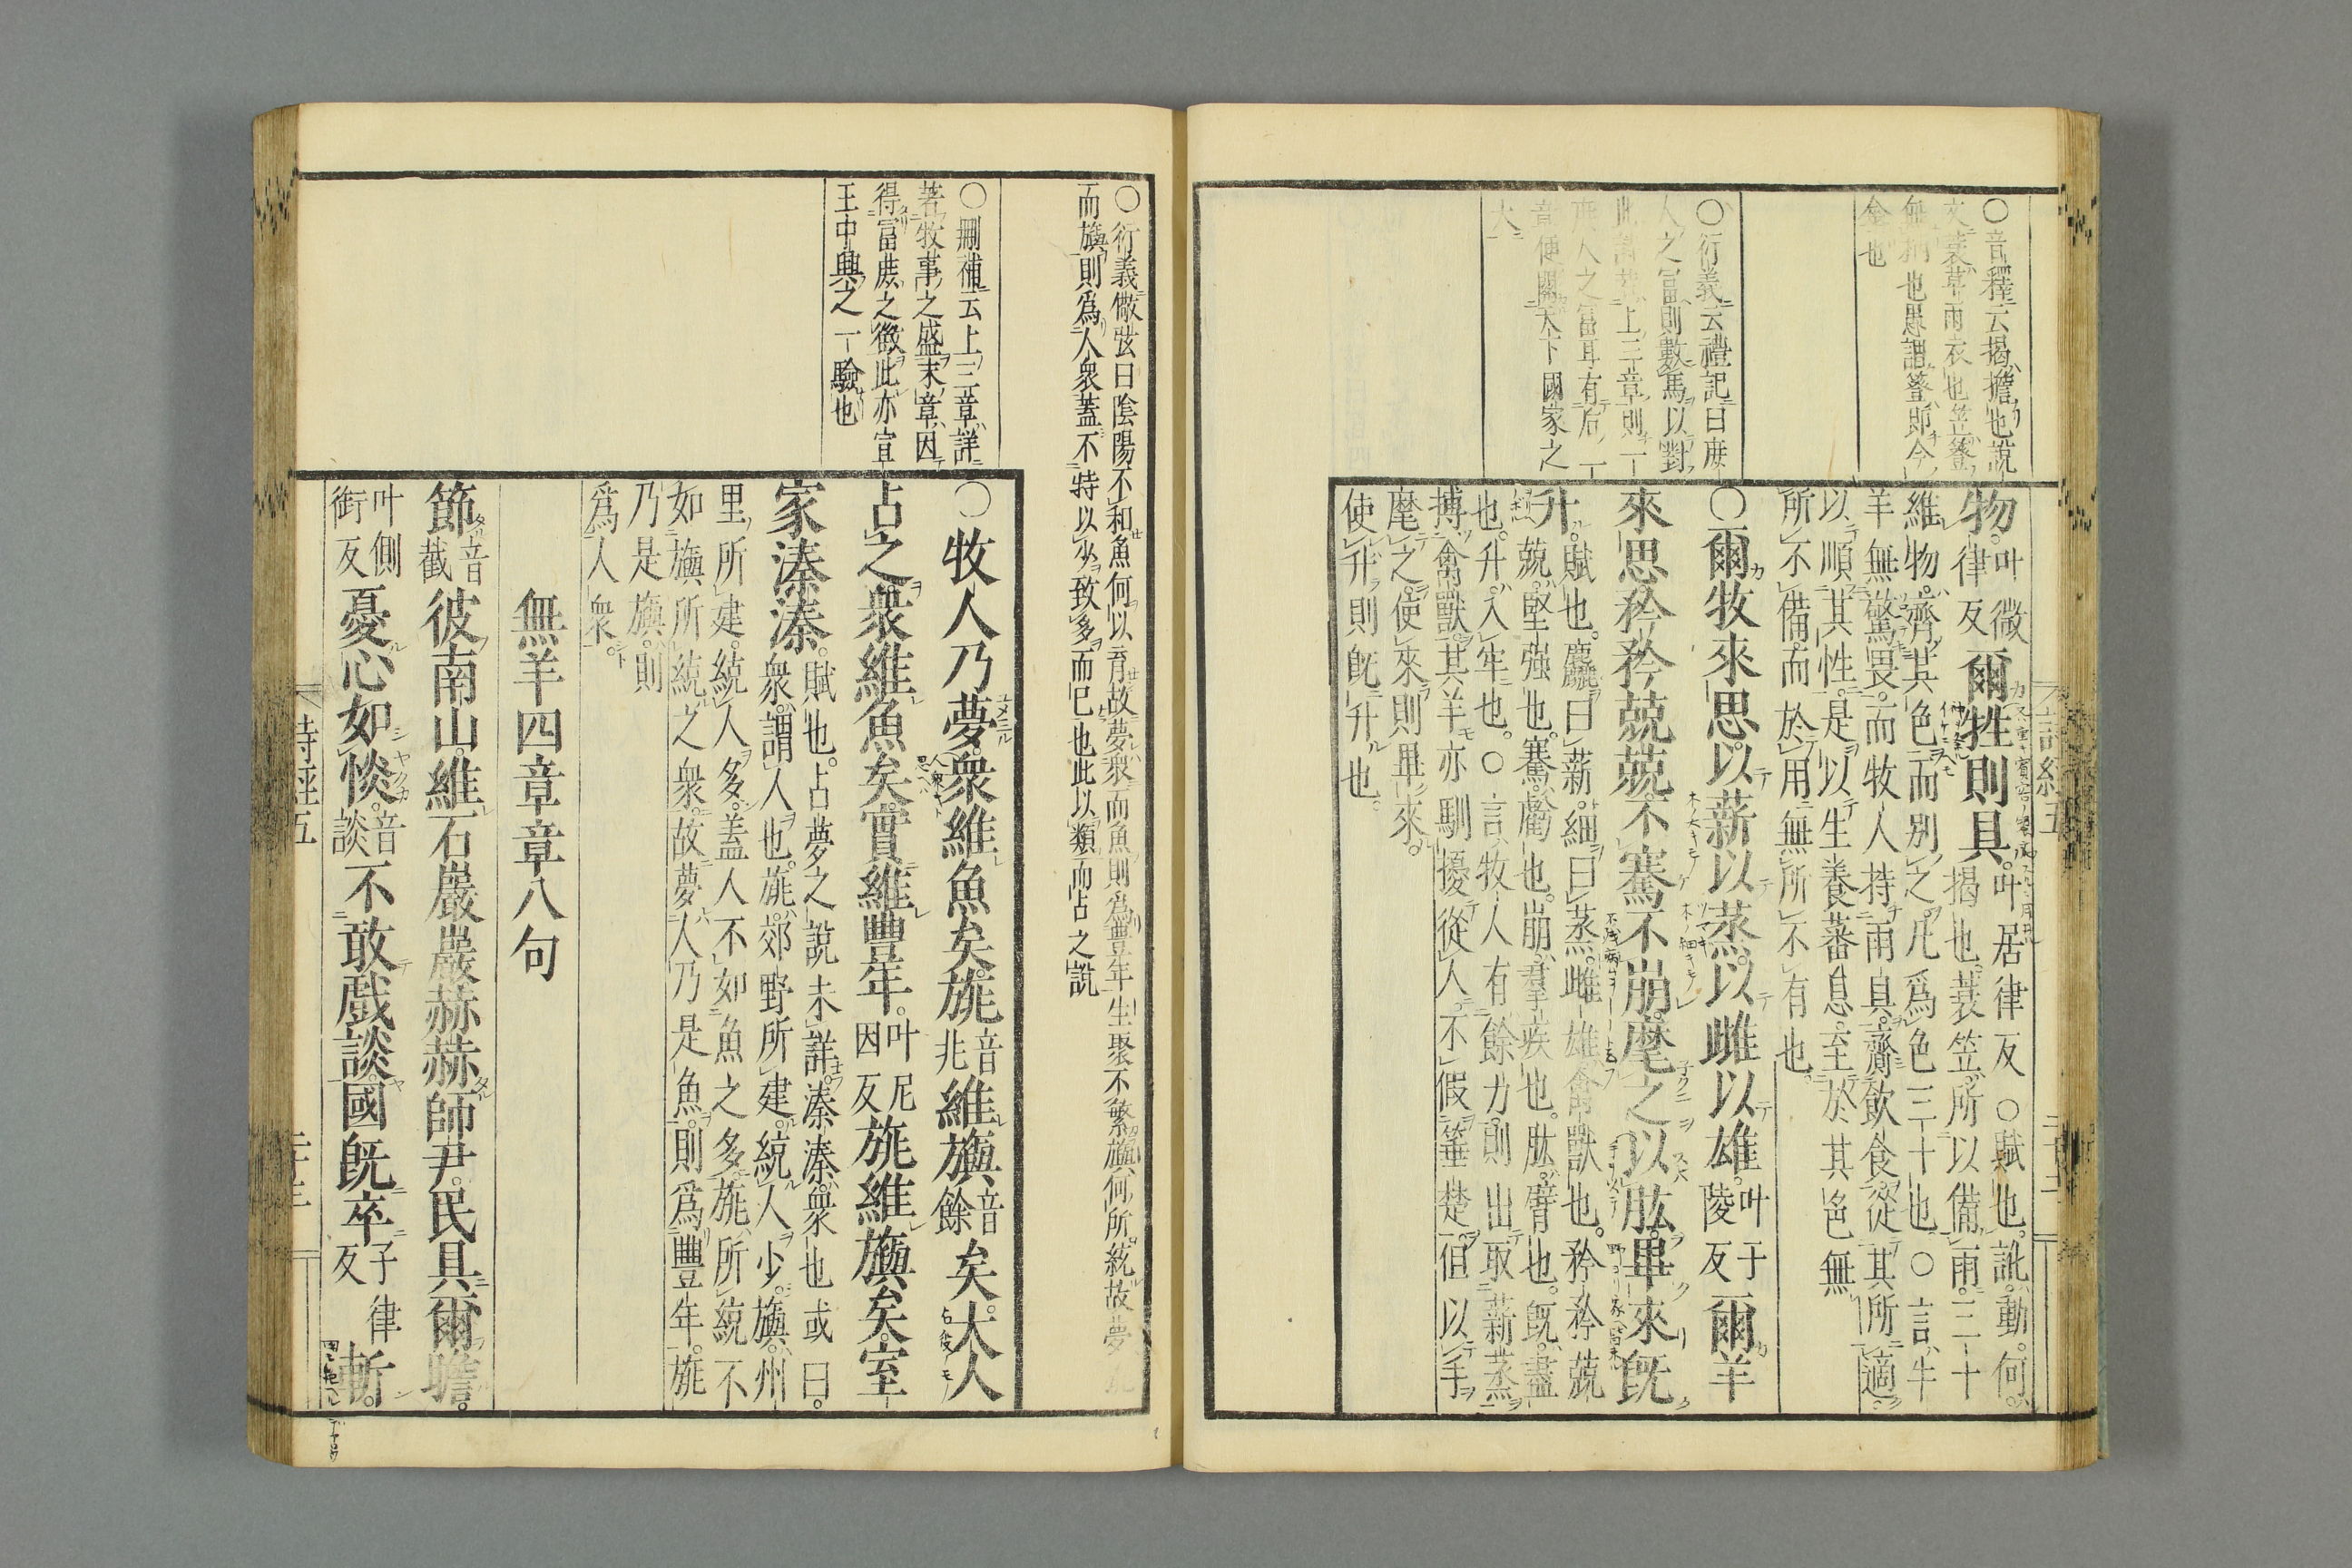 詩經五
○音釋云揭擔也說
文蓑草雨衣也笠簦
無柄也愚謂簦即今
傘也
○衍義云禮記曰庶
人之富則數馬以對
章便關天下國家之
大
物叶微律反爾牲則具叶居律反○賦也訛動何
揭也蓑笠所以備雨三十
維物齊其色而別之凡爲色三十也○言牛
羊無驚畏而牧人持雨具齎飲食從其所適
以順其性是以生養蕃息至於其色無
所不備而於用無所不有也
○爾牧來思以薪以蒸以雌以雄叶于陵反爾羊
來思矜矜兢兢不騫不崩麾之以肱畢來既
升賦也麤曰薪細曰蒸雌雄禽獸也矜矜兢
兢堅强也騫虧也崩羣疾也肱臂也既盡
也升入牢也○言牧人有餘力則出取薪蒸
搏禽獸其羊亦馴擾從人不假箠楚但以手
麾之使來則畢來
使升則既升也
○衍義儆弦曰陰陽不和魚何以育故夢衆而魚則爲豊年生聚不繁旟何所統故夢
而旟則爲人衆蓋不特以少致多而已也此以類而占之說
○刪補云上三章詳
著牧事之盛末章因
得富庶之徵此亦宣
王中興之一驗也
○牧人乃夢衆維魚矣旐音兆維旟音餘矣大人
占之衆維魚矣實維豐年叶尼因反旐維旟矣室
家溱溱賦也占夢之說未詳溱溱衆也或曰
衆謂人也旐郊野所建統人少旟州
里所建統人多蓋人不如魚之多旐所統不
如旟所統之衆故夢人乃是魚則爲豐年旐
乃是旟則
爲人衆
無羊四章章八句
節音截彼南山維石巖巖赫赫師尹民具爾瞻
叶側銜反憂心如惔音談不敢戲談國既卒子律反斬
詩經五